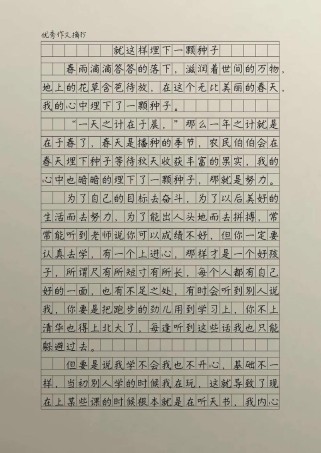 优秀作文摘抄
就这样埋下一颗种子
春雨滴滴答答的落下，滋润着世间的万物，
地上的花草含苞待放，在这个无比美丽的春天，
我的心中埋下了一颗种子。
“一天之计在于晨，”那么一年之计就是
在于春了，春天是播种的季节，农民伯伯会在
春天埋下种子等待秋天收获丰富的果实，我的
心中也暗暗的埋下了一颗种子，那就是努力。
为了自己的目标去奋斗，为了以后美好的
生活而去努力，为了能出人头地而去拼搏，常
常能听到老师说你可以成绩不好，但你一定要
认真去学，有一个上进心，那样才是一个好孩
子，所谓尺有所短寸有所长，每个人都有自己
好的一面，也有不足之处，有时会听到别人说
我，你要是把跑步的劲儿用到学习上，你不上
清华也得上北大了，每逢听到这些话我也只能
躲避过去。
但要是说我学不会我也不开心，基础不一
样，当初别人学的时候我在玩，这就导致了现
在上某些课的时候根本就是在听天书，我内心